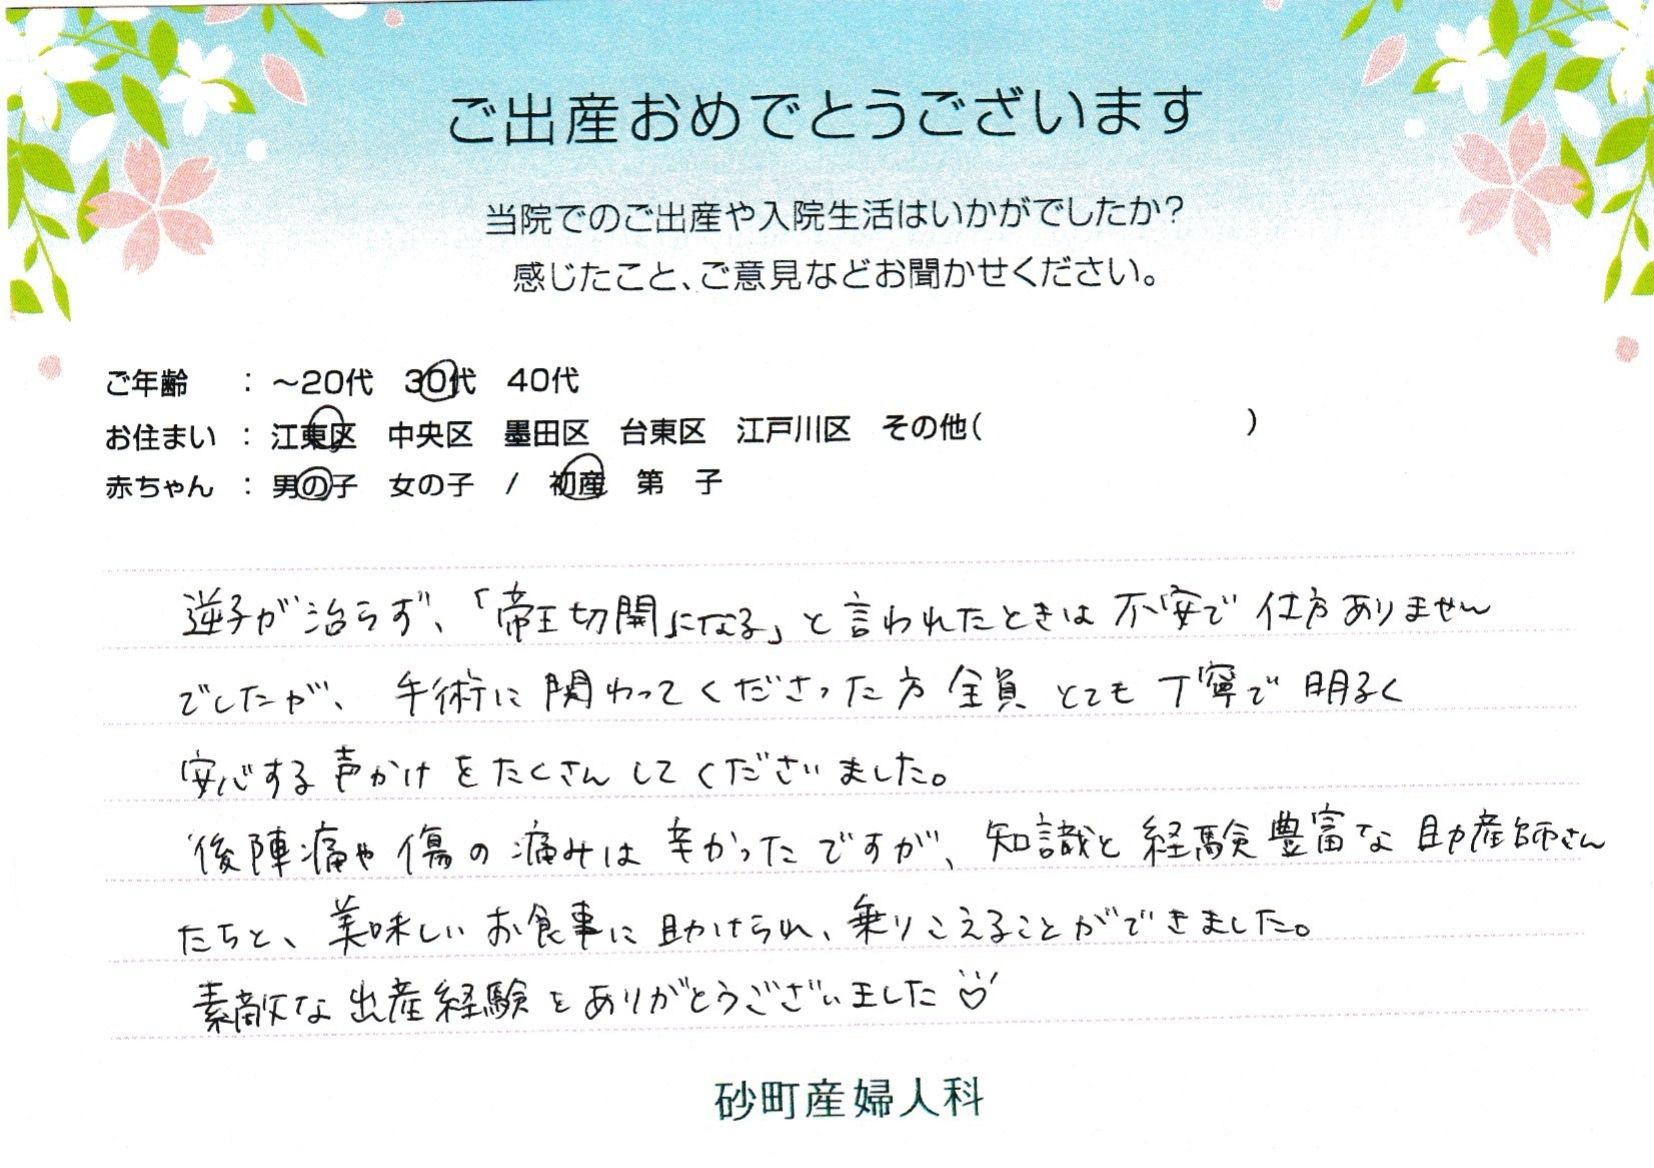 ご出産おめでとうございます
当院でのご出産や入院生活はいかがでしたか?
感じたこと、ご意見などお聞かせください。
ご年齢 : ～20代 30代 40代
お住まい : 江東区 中央区 墨田区 台東区 江戸川区 その他( )
赤ちゃん : 男の子 女の子 / 初産 第 子
逆子が治らず、「帝王切開になる」と言われたときは不安で仕方ありません
でしたが、手術に関わってくださった方全員とても丁寧で明るく
安心する声かけをたくさんしてくださいました。
後陣痛や傷の痛みは辛かったですが、知識と経験豊富な助産師さん
たちと、美味しいお食事に助けられ、乗りこえることができました。
素敵な出産経験をありがとうございました♡
砂町産婦人科